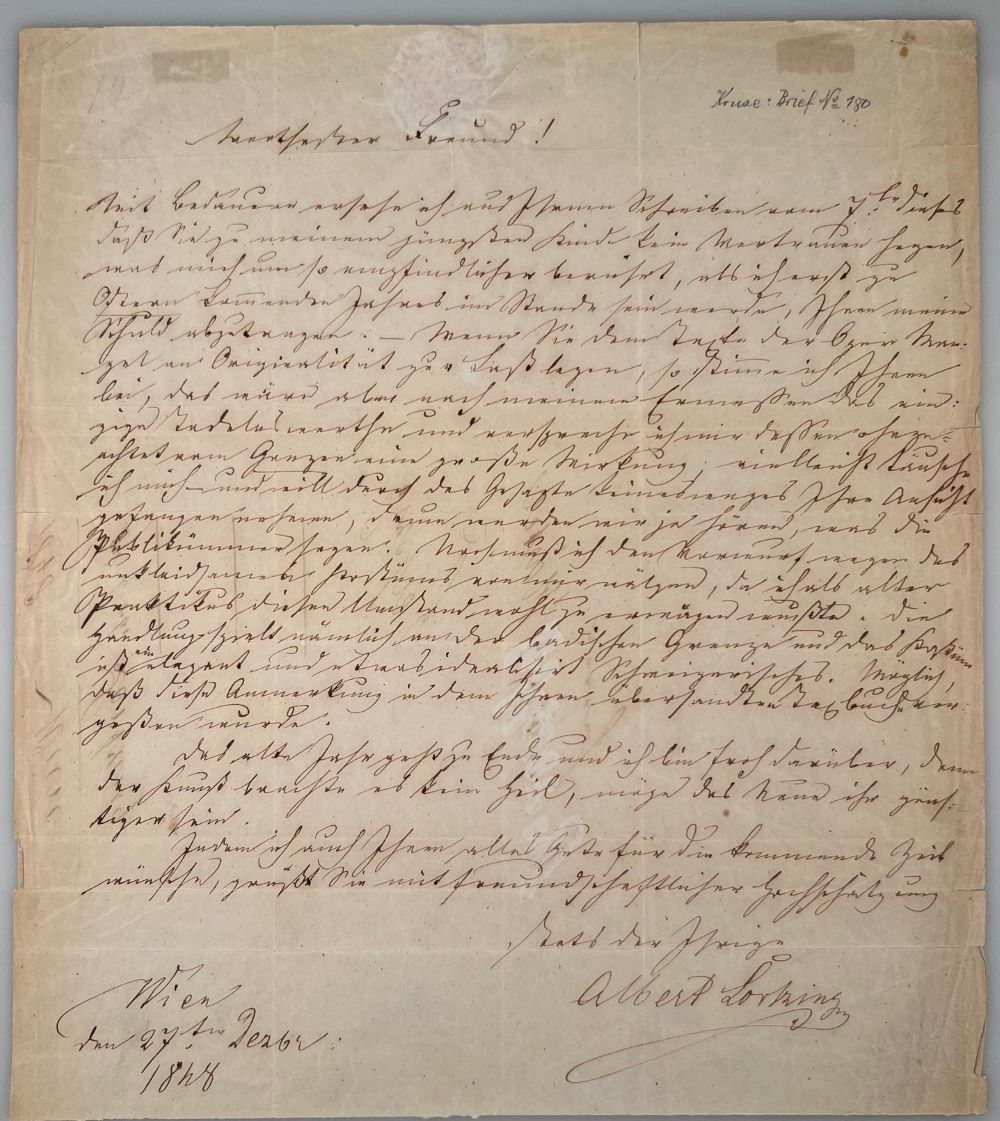 Kruse: Brief No 180
Werthester Freund!
Mit Bedauern ersehe ich aus Ihrem Schreiben vom 7t. dieses
daß Sie zu meinem jüngsten Kinde kein Vertrauen hegen,
was mich um so empfindlicher berührt, als ich erst zu
Ostern kommenden Jahres im Stande sein werde, Ihnen meine
Schuld abzutragen. — Wenn Sie dem Texte der Oper Man-
gel an Originalität zur Last legen, so stimme ich Ihnen
bei, das wäre aber nach meinem Ermessen das ein:
zige Tadelnswerthe und verspreche ich mir dessen ohnge-
achtet vom Ganzen eine große Wirkung; vielleicht täusche
ich mich und will durch das Gesagte keineswegs Ihre Ansicht
gefangen nehmen, denn werden wir ja hören, was die
Publikümmer sagen. Noch muß ich den Vorwurf wegen des
unkleidsamen Kostüms von mir wälzen, da ich als alter
Praktikus diesen Umstand wohl zu erwägen wußte. Die
Handlung spielt nämlich an der badischen Grenze und das Kostüm
ist ein elegant und etwas idealisirt Schweizerisches. Möglich,
daß diese Anmerkung in dem Ihnen übersandten Texbuche ver:
geßen wurde.
Das alte Jahr geht zu Ende und ich bin froh darüber, denn
der Kunst brachte es kein Heil, möge das Neue ihr güns-
tiger sein.
Indem ich auch Ihnen alles Gute für die kommende Zeit
wünsche, grüßt Sie mit freundschaftlicher Hochschätzung
stets der Ihrige
Albert Lortzing
Wien
den 27ten Dezbr:
1848